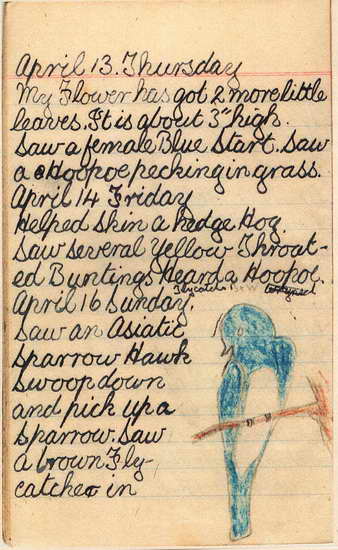 April 13. Thursday
My Flower has got 2 more little
leaves. It is about 3" high.
Saw a female Blue Start. Saw
a Hoopoe pecking in grass.
April 14 Friday
Helped Skin a hedge Hog.
Saw several Yellow Throat-
ed Buntings Heard a Hoopoe.
April 16 Sunday.
Flycatcher B & W
Saw an Asiatic
Sparrow Hawk
Swoop down
and pick up a
Sparrow. Saw
a brown Fly-
catcher in